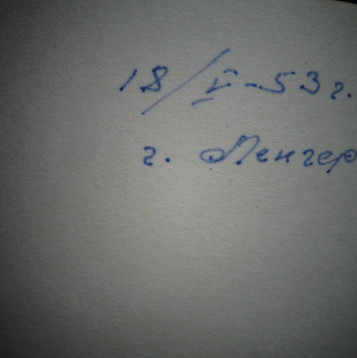 18/V-53 г.
г. Ленгер